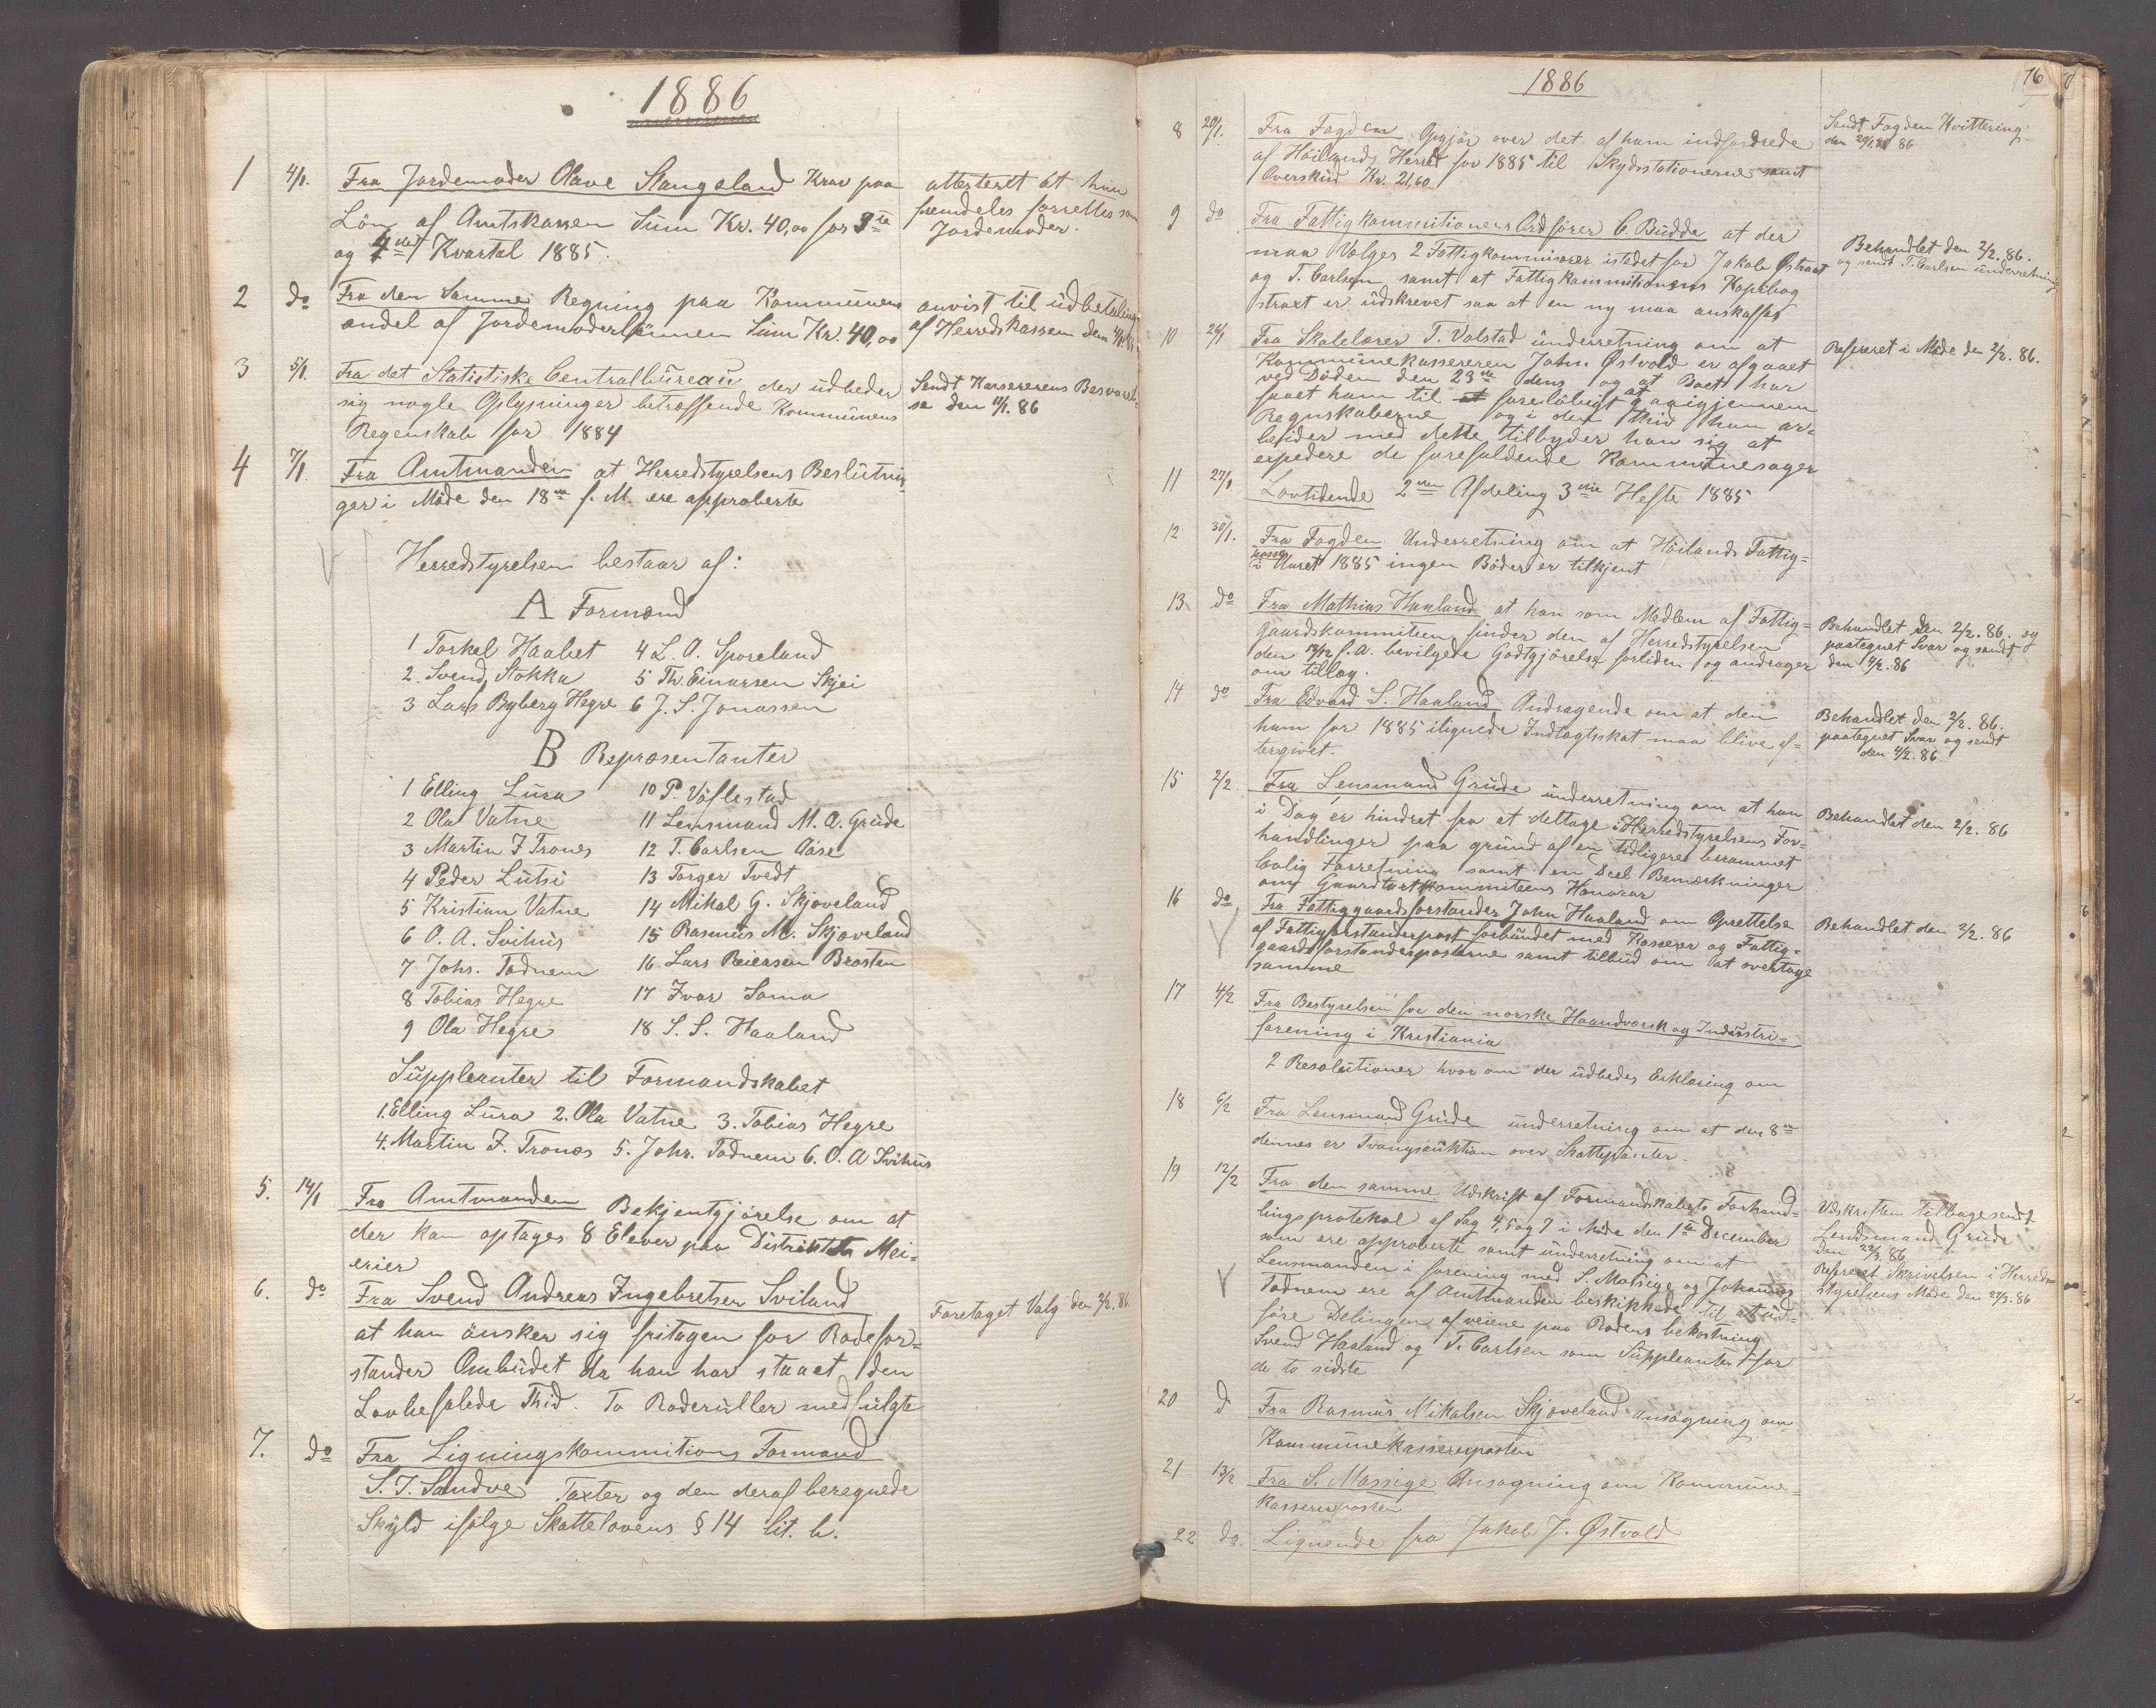 1886
1 4/1. Fra Jordemoder Olave Stangeland Krav paa attesteret at hun
Løn af Amtskassen Sum Kr. 40,00 for 3die fremdeles forrettes som
og 4de Kvartal 1885. Jordemoder.
2 do Fra den Samme Regning paa Kommunens anvist til udbetaling
andel af Jordemoderlønnen Sum Kr. 40,00 af Herredskassen den
3 5/1. Fra det Statistiske Centralbüreau der udbeder Sendt Kassererens Besvarel-
sig nogle Oplysninger betræffende Kommunens se den 11/1. 86
Regenskab for 1884
4 7/1 Fra Amtmanden at Herredstyrelsens Beslutnin-
ger i Møde den 18de f. M. ere approberte
Herredstyrelsen bestaar af:
A Formænd
1 Torkel Haabet 4 L. A. Sporeland
2. Svend Stokka 5 Th. Einarsen Skjei
3 Lars Byberg Hegre 6 J. S. Jonassen
B Repræsentanter
1 Elling Lura 10 P. Vøflestad
2 Ola Vatne 11 Lensmand M. A. Grude
3 Martin J Trones 12 T. Carlsen Aase
4 Peder Lutsi 13 Torger Tvedt
5 Kristian Vatne 14 Mikal G. Skjæveland
6 O. A. Svihus 15 Rasmus M. Skjæveland
7 Johs. Todnem 16. Lars Reiersen Brosten
8 Tobias Hegre 17 Ivar Soma
9 Ola Hegre 18 S. S. Haaland
Suppleanter til Formandskabet
1. Elling Lura 2. Ola Vatne 3. Tobias Hegre
4. Martin J. Trones 5. Johs. Todnem 6. O. A Svihus
5. 14/1 Fra Amtmanden Bekjentgjørelse om at
der kan optages 8 Elever paa Distriktets Mei-
erier
6. do Fra Svend Andreas Ingebretsen Sviland Foretaget Valg den 2/2. 86.
at han ønsker sig fritagen for Rodefor-
stander Ombudet da han har staaet den
Lovbefalede Thid. To Roderuller medfulgte
7. do Fra Ligningskommitions Formand
S. T. Sandve Taxter og den deraf beregnede
Skyld ifølge Skattelovens § 14 lit. b.
1886 76
8 20/1. Fra Fogden Opgjør over det af ham indfordrede Sendt Fogden Kvittering
af Høilands Herred for 1885 til Skydsstationerne samt den 86
Overskud Kr. 21,60
9 do Fra Fattigkommitionens Ordfører C. Budde at der
maa Vælges 2 Fattigkommisærer istedet for Jakob Østraat Behandlet den 2/2. 86.
og T. Carlsen samt at Fattigkommitionens Kopibog og sendt T. Carlsen underretning
strart er udskrevet saa at en ny maa anskaffes
10 26/1 Fra Skolelærer T. Valstad underretning om at Refereret i Møde den 2/2. 86.
Kommunekassereren John Østvold er afgaaet
ved Døden den 23de dens og at Boet har
faaet ham til foreløbigt at gaaigjennem
Regnskaberne og i den thid han ar-
beider med dette tilbyder han sig at
expedere de forefaldende Kommunesager
11 27/1 Lovtidende 2den Afdeling 3die Hefte 1885
12 30/1. Fra Fogden Underretning om at Høilands Fattig-
kasse i Aaret 1885 ingen Bøder er tilkjent
13 do Fra Mathias Haaland at han som Medlem af Fattig- Behandlet den 2/2. 86. og
gaardskommiteen finder den af Herredstyrelsen paategnet Svar og sendt
den 18/12 f. A. bevilgede Godtgjørelse forliden og andrager den 4/2. 86
om tillæg.
14 do Fra Edvard S. Haaland Andragende om at den Behandlet den 2/2. 86.
ham for 1885 ilignede Indtægtsskat maa blive ef- paategnet Svar og sendt
tergivet. den 4/2. 86.
15 2/2 Fra Lensmand Grude underretning om at han Behandlet den 2/2. 86
i Dag er hindret fra at deltage i Herredstyrelsens For-
handlinger paa grund af en tidligere berammet
lovlig Forretning samt en Deel Bemærkninger
om Gaardtaxtkommiteens Honorar
16 do Fra Fattiggaardsforstander John Haaland om Oprettelse Behandlet den 2/2. 86
af Fattigforstanderpost forbundet med Kasserer og Fattig-
gaardsforstanderposterne samt tilbud om at overtage
samme
17 4/2 Fra Bestyrelsen for den norske Haandværk og Industri-
forening i Kristiania
2 Resolutioner hvor om der udbedes Erklæring om
18 6/2 Fra Lensmand Grude underretning om at den 8de
dennes er Tvangsauktion over Skattepanter.
19 12/2 Fra den samme Udskrift af Formandskabets Forhand- Udskriften tilbagesendt
lingsprotokol af Sag 4, 5 og 7 i Møde den 1ste December Lendsmand Grude
som ere approberte samt underretning om at Den 22/3. 86
Lensmanden i forening med S. Matsige og Johannes Refereret Skrivelsen i Herreds-
Todnem ere af Amtmanden beskikkede til at ud- styrelsens Møde den 27/3. 86
føre Delingen af veiene paa Rodens bekostning
Svend Haaland og T. Carlsen som Suppleanter for
de to sidste
20 d Fra Rasmus Mikalsen Skjæveland Ansøgning om
Kommunekassererposten
21 13/2 Fra S. Massige Ansøgning om Kommune-
kassererposten
22 do. Lignende fra Jakob J. Østvold